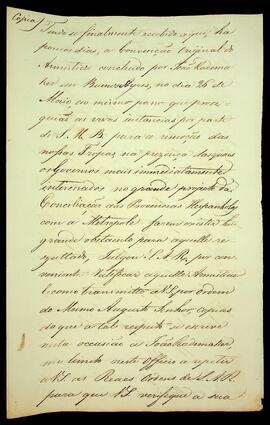 Copia
Tendo-se finalmente recebido aqui, ha
poucos dias, a Convenção Original do
Armisticio concluido por João Radema-
ker em Buenos Ayres, no dia 26 de
Maio, ao mesmo passo que prose-
guião as vivas instancias por parte
de S. M. B. para a remoção das
nossas Tropas na prezença das quaes
os Governos mais immediatamente
interessados no grande projecto da
Conciliação das Provincias Hespanholas
com a Metropole fazem existir hum
grande obstaculo para aquelle re-
sultado, Julgou S. A. R. por con-
veniente Ratificar aquelle Armisticio
E como transmitto a V. S. por ordem
do Mesmo Augusto Senhor, copias
do que a tal respeito se escreve
nesta occasião a João Rademaker,
me limito neste Officio a repetir
a V. S. as Reaes Ordens de S. A. R.
para que V. S. verifique a sua